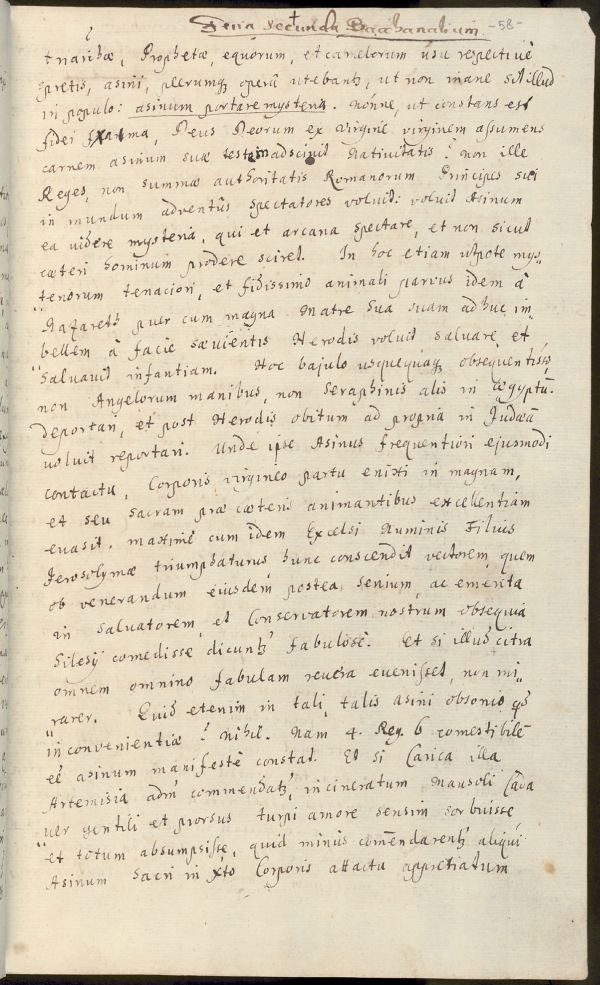 Feria secunda Bacchanalium. -58-
triarchæ, Prophetæ, equorum, et camelorum usu respectivè
spretis, asini, plerumq operâ utebantz, ut non inane sit illud
in populo: asinum portare mysteria. nonne, ut constans est
fidei Deus Deorum ex virgine virginem assumens
carnem asinum suæ testem adscivit Nativitatis? non ille
Reges, non summæ authoritatis Romanorum Principes sui
in mundum adventûs spectatores voluit: voluit Asinum
ea videre mysteria, qui et arcana spectare, et non sicut
cæteri hominum prodere sciret. In hoc etiam utpote mys„
teriorum tenaciori, et fidissimo animali parvus idem â
Nazareth puer cum magna Matre sua suam adhuc im„
bellem â facie sævientis Herodis voluit salvare, et
salvavit infantiam. Hoc bajulo usquequaq obsequentissº
non Angelorum manibus, non Seraphinis alis in ægyptū.
deportari, et post Herodis obitum ad propria in Judæā
voluit reportari. Unde ipse Asinus frequentiori ejusmodi
contactu, Corporis virgineo partu enixi in magnam,
et seu sacram præ cæteris animantibus excellentiam
evasit. maximè cum idem Excelsi Numinis Filius
Jerosolymæ triumphaturus hunc conscendit vectorem, quem
ob venerandum eiusdem postea senium, ac emerita
in Salvatorem, et Conservatorem nostrum obsequia
Silesij comedisse dicuntz fabulosè. Et si illud citra
omnem omnino fabulam revera evenisset, non mi„
rarer. Quid etenim in tali, talis asini obsonio
inconvenientiæ? nihil. Nam 4. Reg. 6 comestibilē
eē asinum manifestè constat. Et si Carica illa
Artemisia adm commendatz, incineratum Mausoli Cada
„ver gentili et prorsus turpi amore sensim sorbuisse,
et totum absumpsisse, quid minus com̄endarentz aliqui
Asinum Sacri in Xto Corporis attactu appretiatum